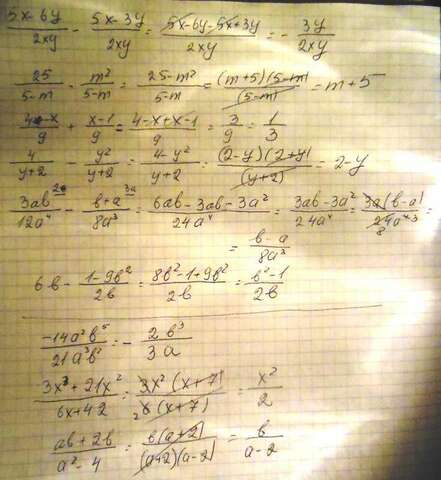 5x-6y/2xy - 5x-3y/2xy = 5x-6y-5x+3y/2xy = - 3y/2xy
25/5-m - m²/5-m = 25-m²/5-m = (m+5)(5-m)/(5-m) = m+5
4-x/9 + x-1/9 = 4-x+x-1/9 = 3/9 = 1/3
4/y+2 - y²/y+2 = 4-y²/y+2 = (2-y)(2+y)/(y+2) = 2-y
3ab/12a⁴ - b+a/8a³ = 6ab-3ab-3a²/24a⁴ = 3ab-3a²/24a⁴ = 3a(b-a)/24a⁴ =
= b-a/8a³
6b - 1-9b²/2b = 8b²-1+9b²/2b = b²-1/2b
-14a²b⁵/21a³b² = - 2b³/3a
3x³+21x²/6x+42 = 3x²(x+7)/6(x+7) = x²/2
ab+2b/a²-4 = b(a+2)/(a+2)(a-2) = b/a-2